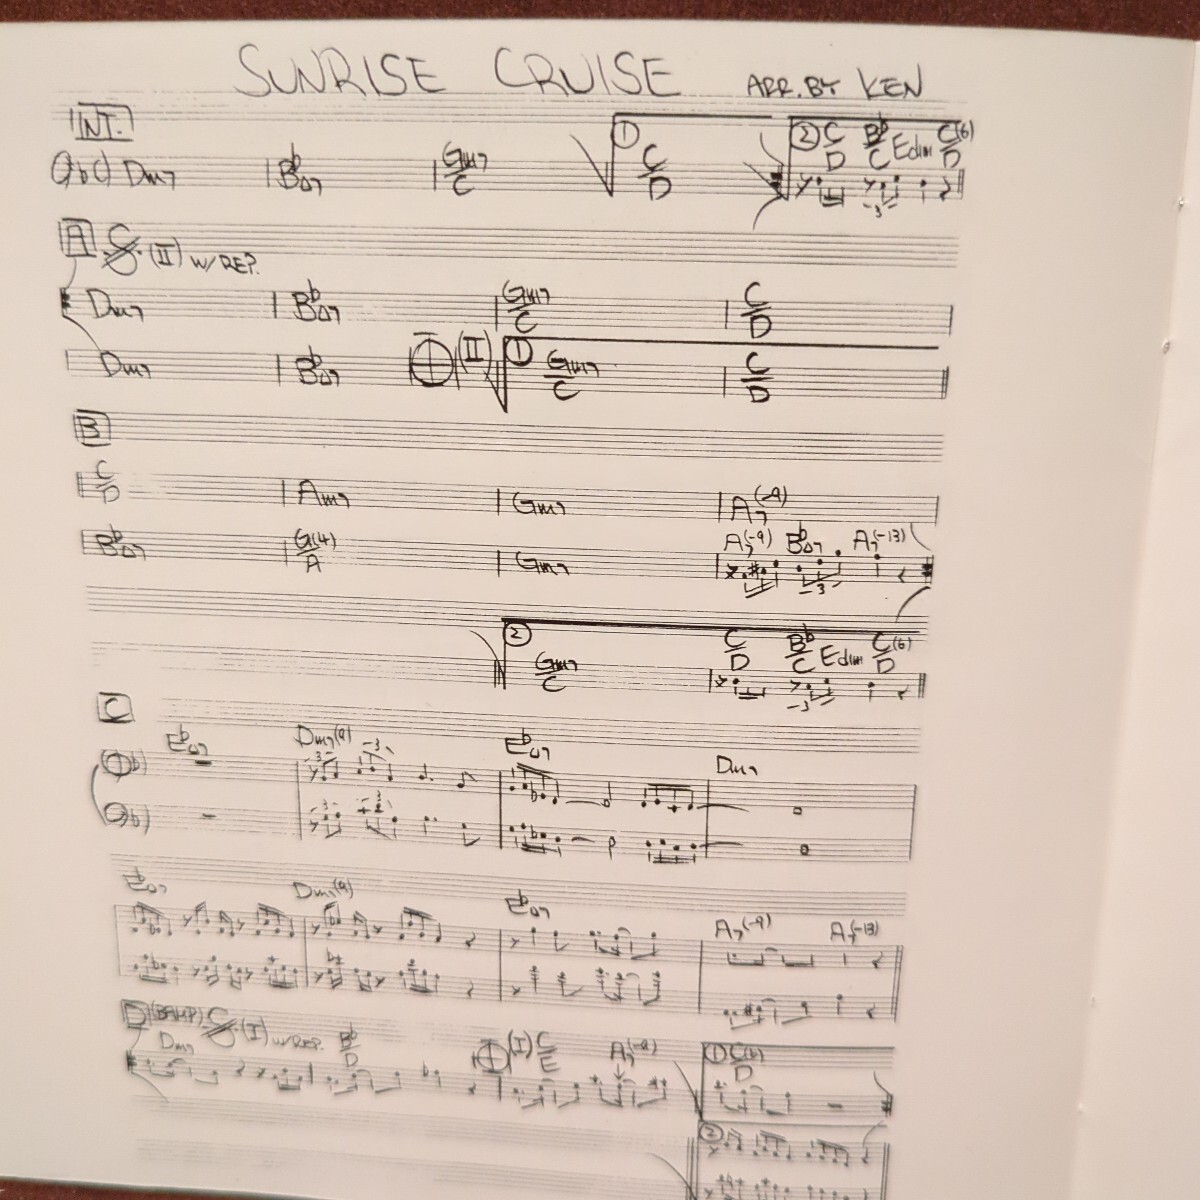 SUNRISE CRUISE ARR. BY KEN
INT.
Dm7 B♭△7 Gm7/C ① C/D ② C/D B♭/C Edim C(6)/D
-3-
A (II) w/REP.
Dm7 B♭△7 Gm7/C C/D
Dm7 B♭△7 (II) ① Gm7/C C/D
B
C/D Am7 Gm7 A7(-9)
B♭△7 G(4)/A Gm7 A7(-9) B♭△7 A7(-13)
-3-
② Gm7/C C/D B♭/C Edim C(6)/D
-3-
C
E♭△7 Dm7(9) E♭△7 Dm7
-3- -3-
-3- -3-
E♭△7 Dm7(9) E♭△7 A7(-9) A7(-13)
D (I) w/REP. (I) C/E A7(-9) ① C(6)/D
Dm7 B♭/D
②